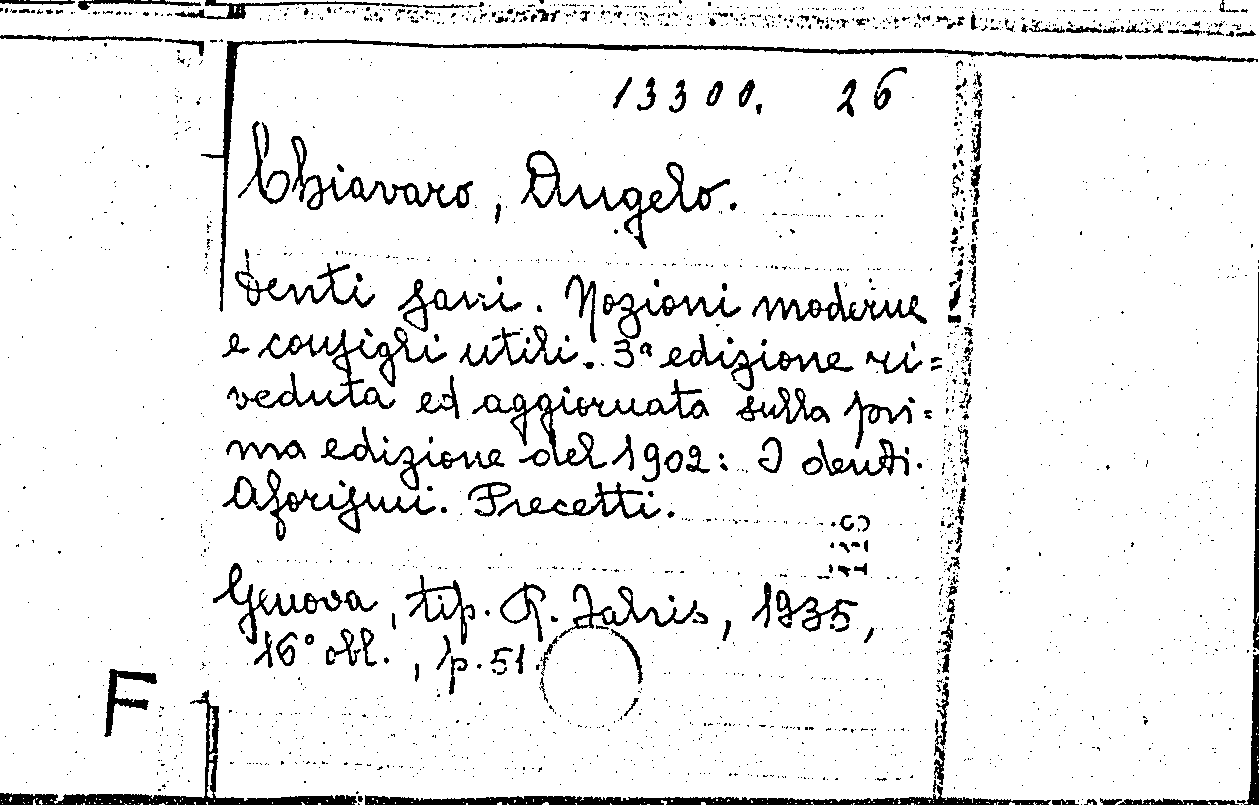 13300. 26
Chiavaro, Angelo.
Denti sani. Nozioni moderne
e consigli utili. 3ª edizione ri=
veduta ed aggiornata sulla pri=
ma edizione del 1902: I denti.
Aforismi. Precetti.
Genova, tip. R. Fabris, 1935,
16° obl., p. 51.
F